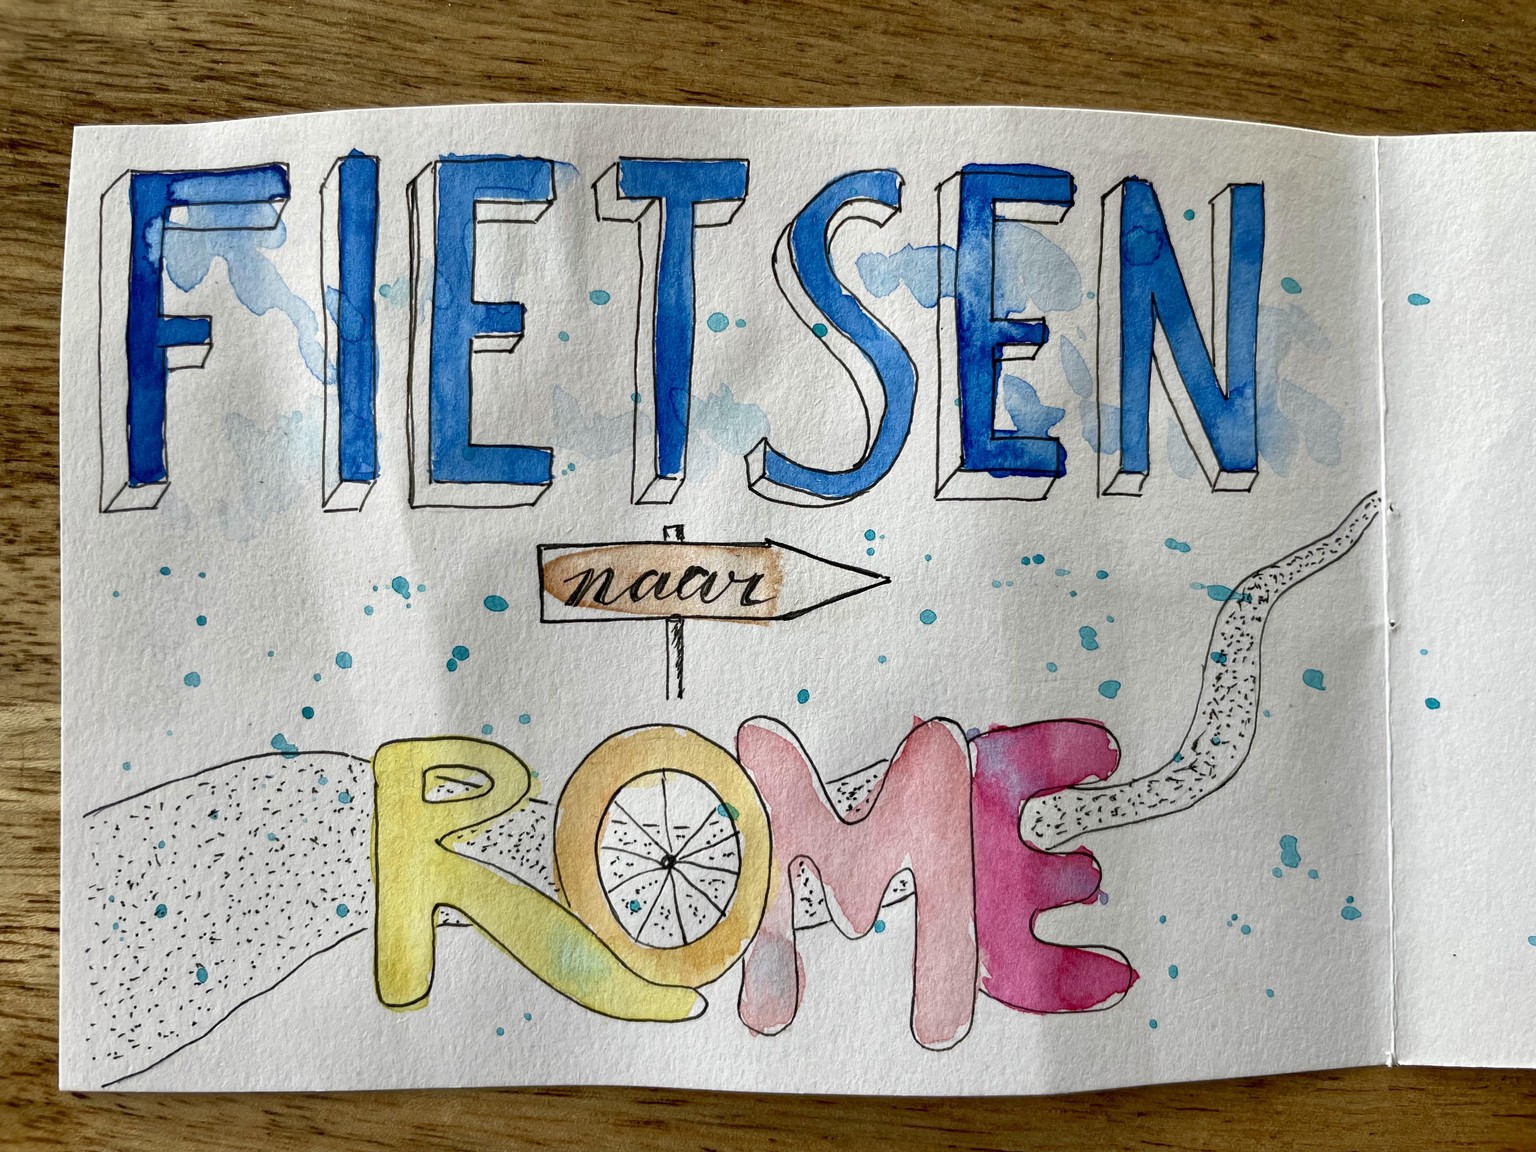 FIETSEN
naar
ROME